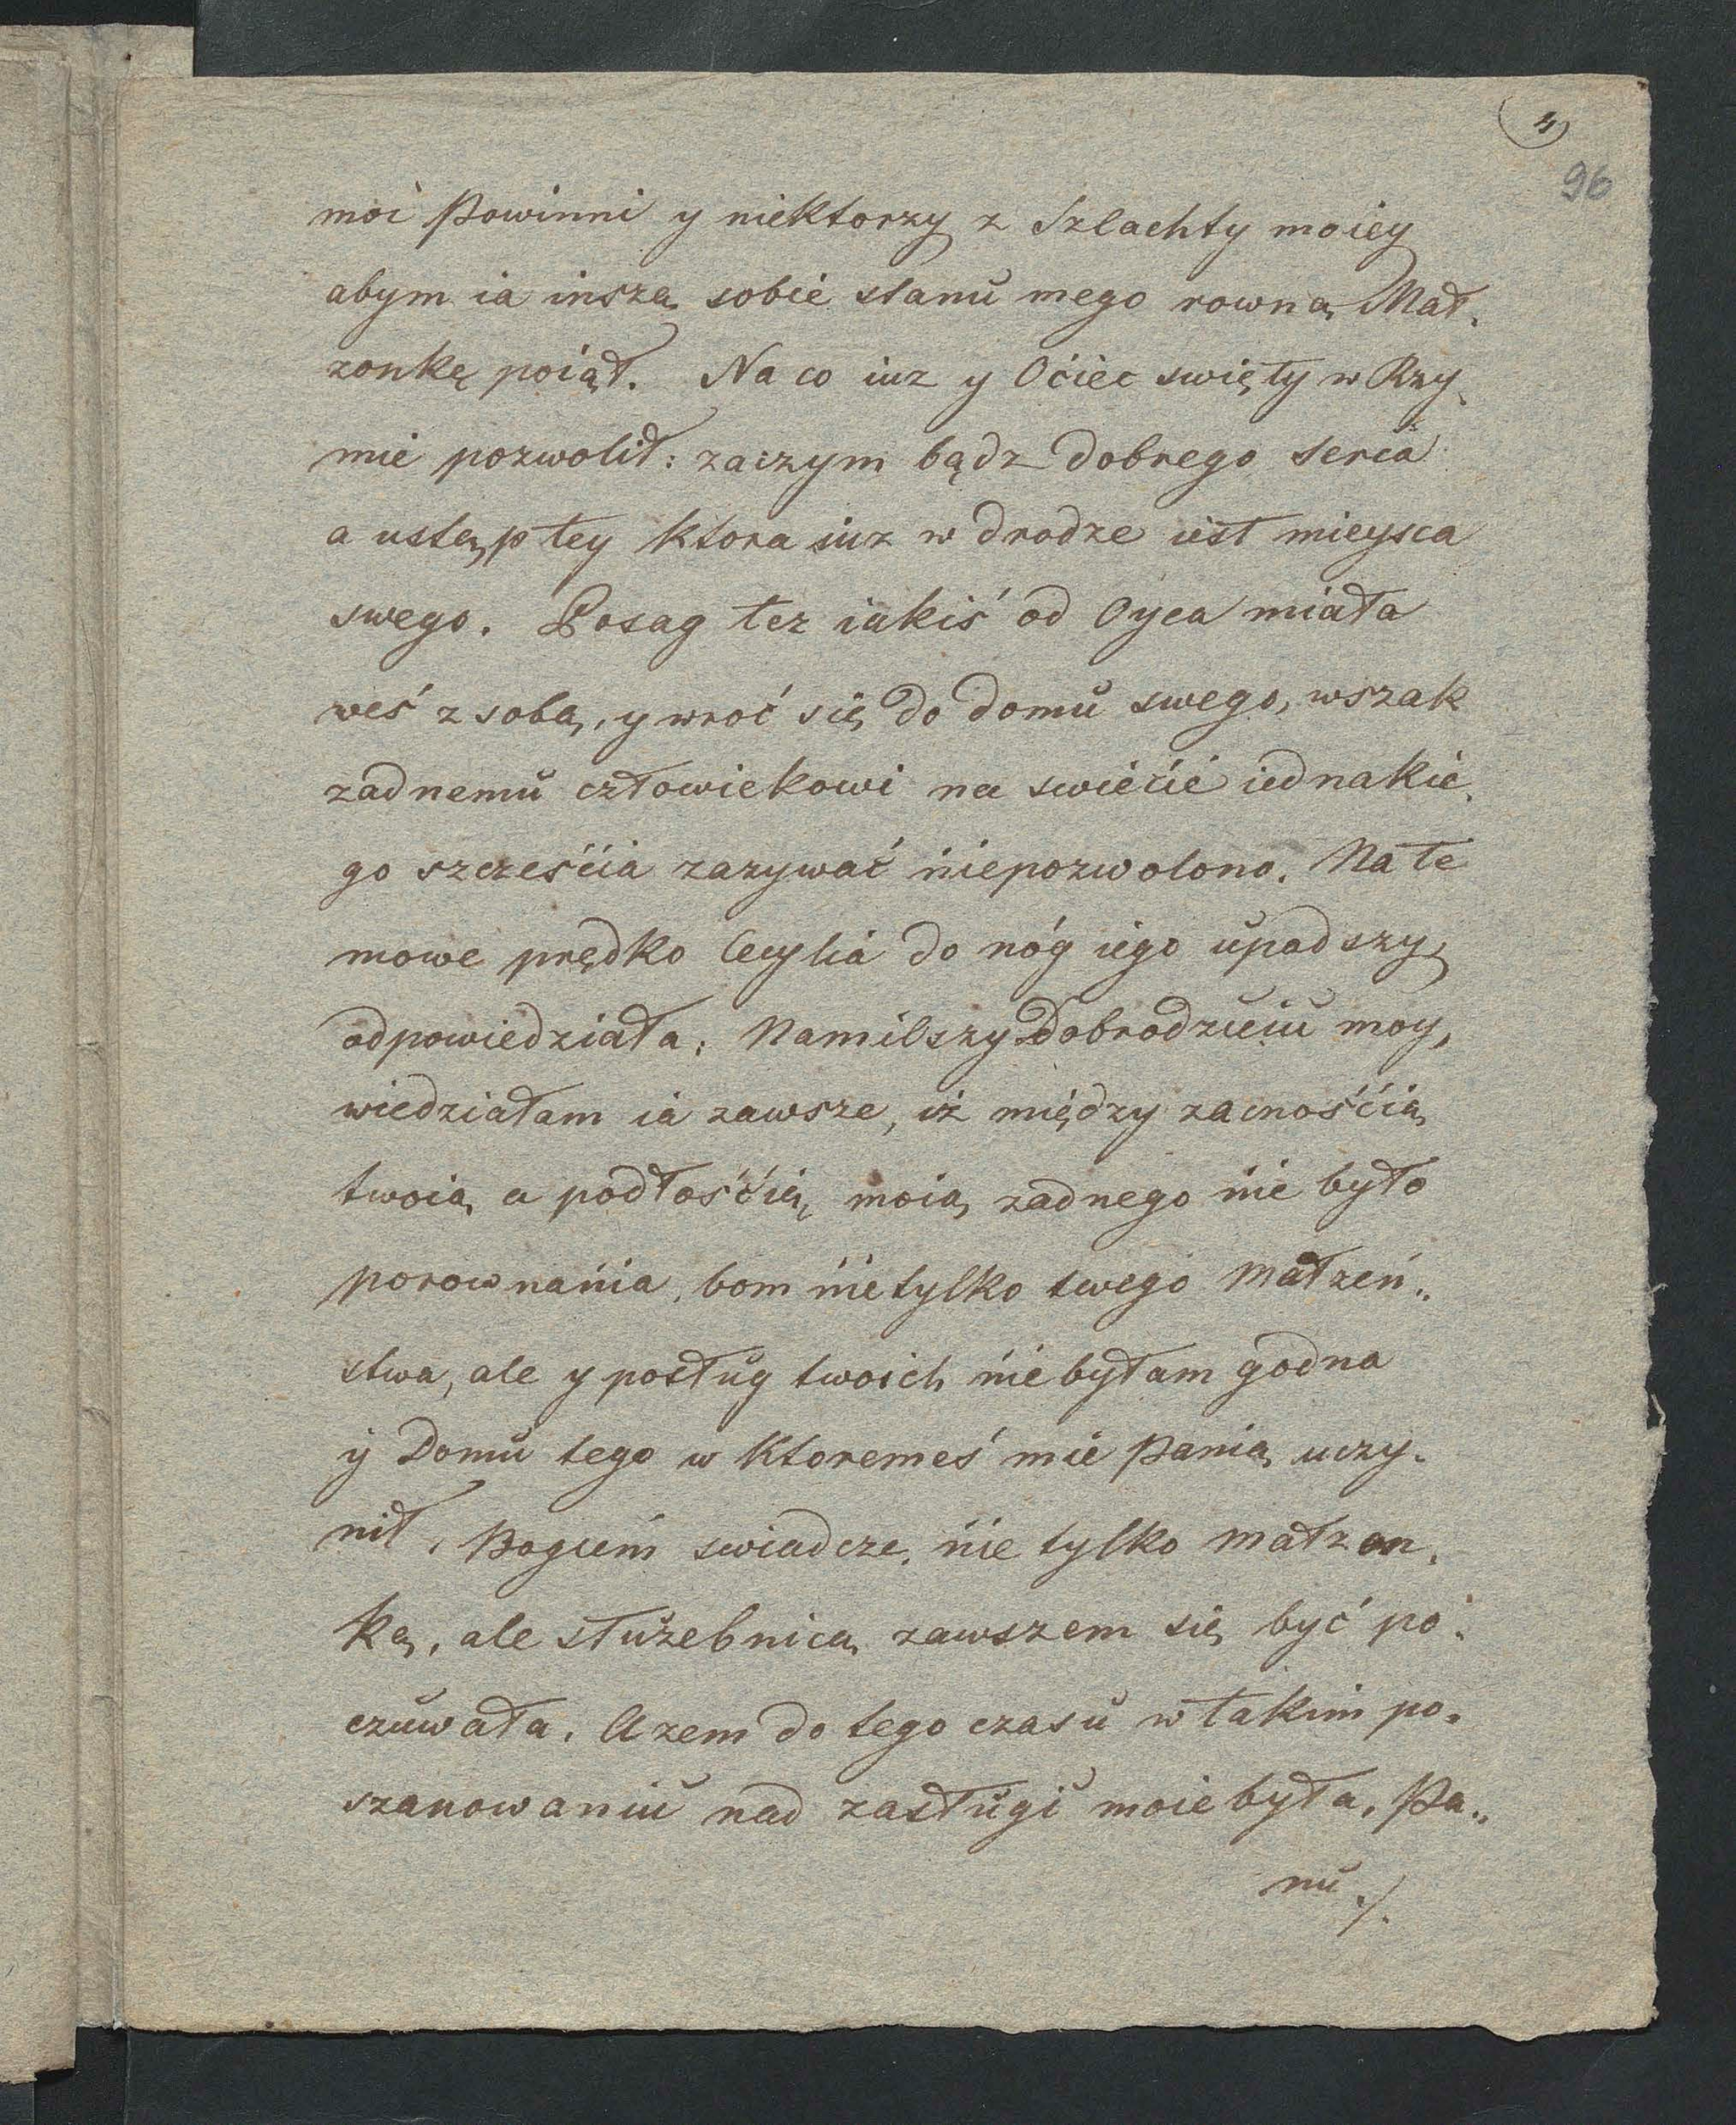 4
96
moi Powinni y niektorzy z Szlachty moiey
abym ia inszą sobie stanu mego rowną Mał„
zonkę poiął. Na co iuz y Oćiec swięty w Rzy„
mie pozwolił: zaczym bądz dobrego serca
a ustęp tey ktora iuz w drodze iest mieysca
swego. Posag tez iakiś od Oyca miała
weś z sobą, y wroć się do domu swego, wszak
zadnemu człowiekowi na swiećie iednakie„
go szczeŝćia zazywać niepozwolono. Na te
mowe prędko Cecylia do nóg iego upadszy
odpowiedziała: Namilszy Dobrodzieiu moy,
wiedziałam ia zawsze, iż między zacnośćią
twoią a podłośćią moią zadnego nie było
porownania, bom nietylko twego Małzeń„
stwa, ale y posług twoich nie byłam godna
y Domu tego w ktoremeś mie Panią uczy„
nił, Bogiem swiadcze, nie tylko małzon„
ką, ale służebnicą zawszem się być po„
czuwała. Azem do tego czasu w takim po„
szanowaniu nad zasługi moie była, Pa„
nu ./.